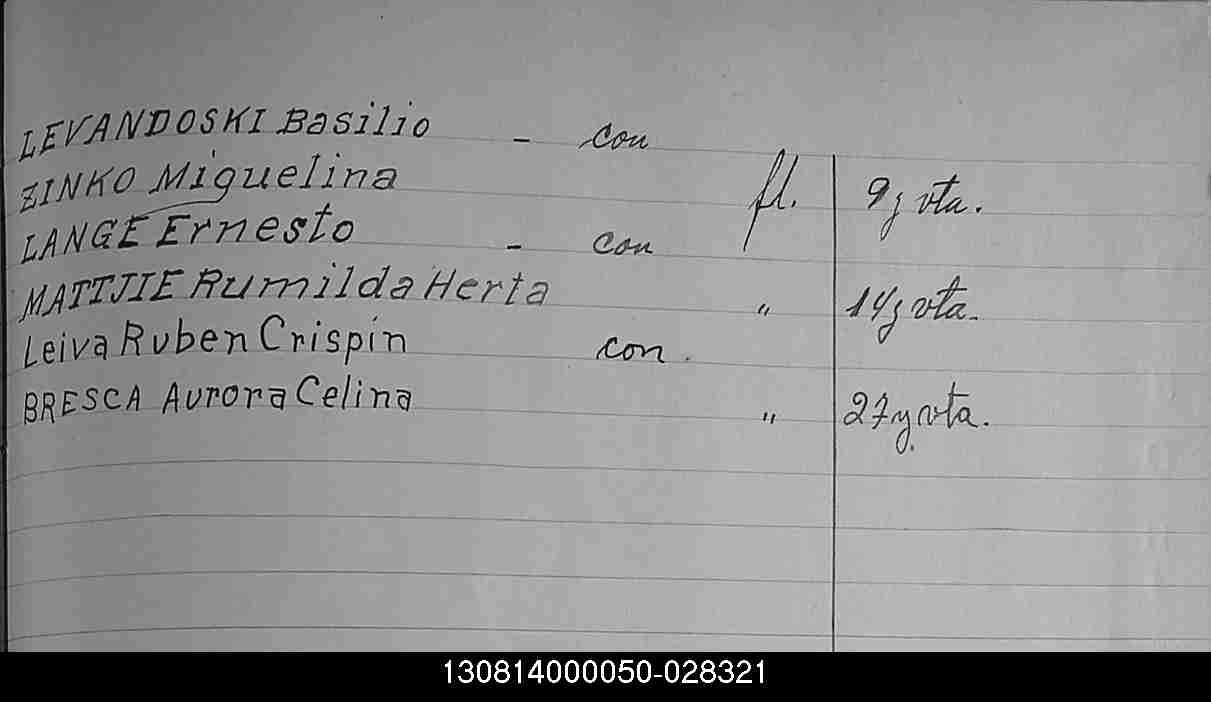 LEVANDOSKI Basilio - con
ZINKO Miguelina fl. 9 y vta.
LANGE Ernesto - con
MATTJIE Rumilda Herta " 14 y vta.
Leiva Ruben Crispín con.
BRESCA Aurora Celina " 27 y vta.
130814000050-028321